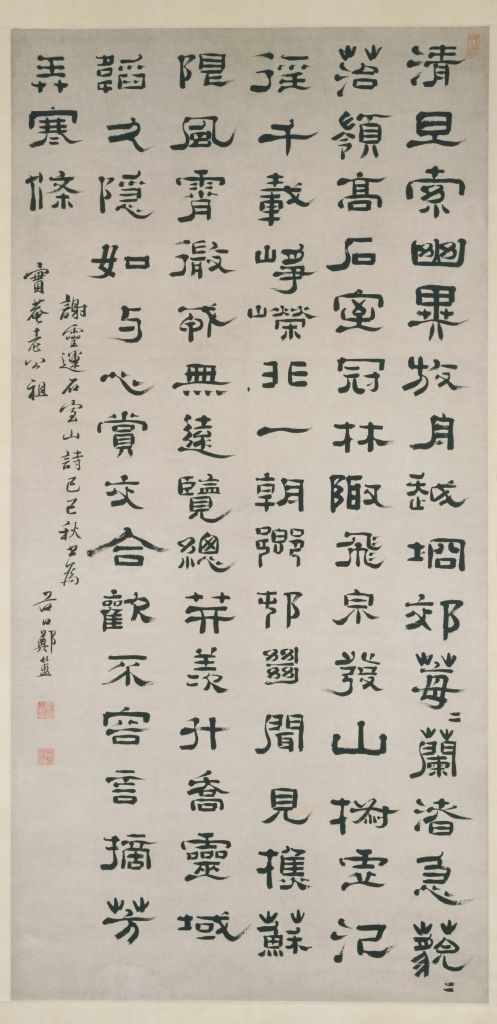 清旦索幽異放舟越坰郊莓〻蘭渚急藐〻
苔嶺高石室冠林陬飛泉發山椒虛汎
徑千載崢嶸非一朝鄉邨𢇍聞見樵蘇
限風霄微戎無遠覽總笄羨升喬靈域
韜久隱如与心賞交合歡不容言摘芳
弄寒條
謝靈運石室山詩己巳秋日為
實菴老公祖
谷口鄭簠